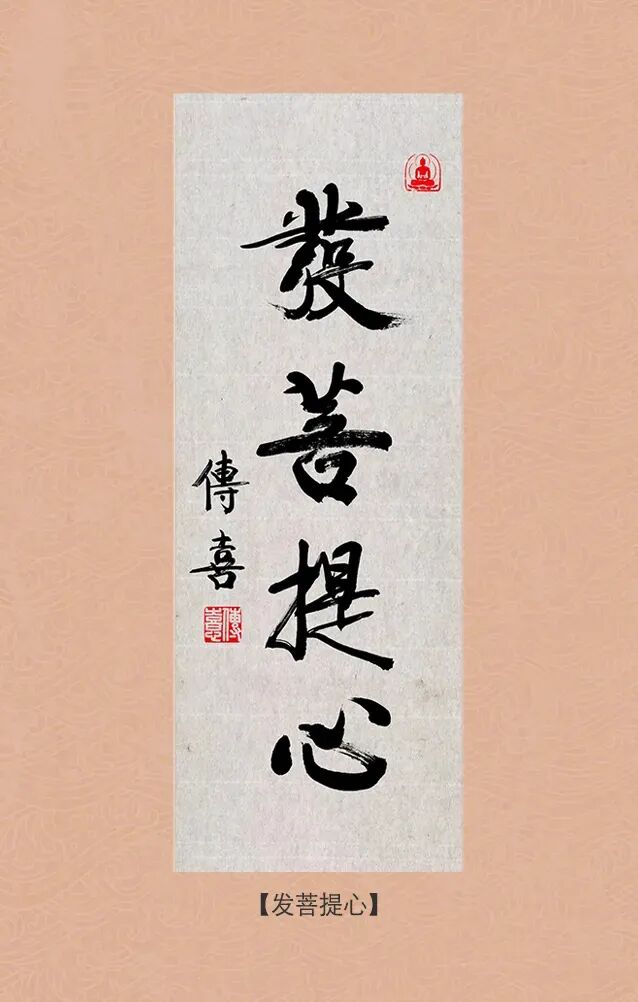 發菩提心
傳喜
傳喜
【发菩提心】